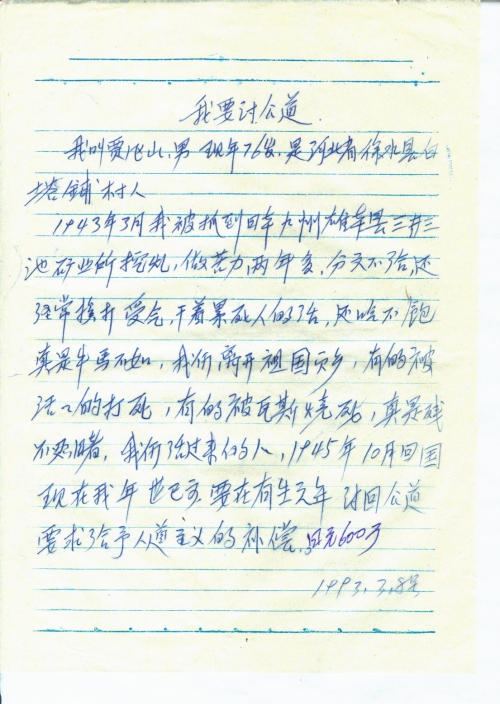 我要讨公道
我叫贾 山,男 现年76岁,是河北省徐水县白
塔铺村人
1943年3月我被抓到日本九州 县三井三
池矿业所挖炭,做苦力,两年多,分文不给,还
经常挨打受气,干着累死人的活,还哈不饱
真是牛马不如,我们离开祖国家乡,有的被
活〻的打死,有的被瓦斯烧死,真是残
不 睹,我们活过来的人,1945年10月回国
现在我年世已高 要在有生之年 讨回公道
要求给予人道主义的补偿、日元600万
1993.3.